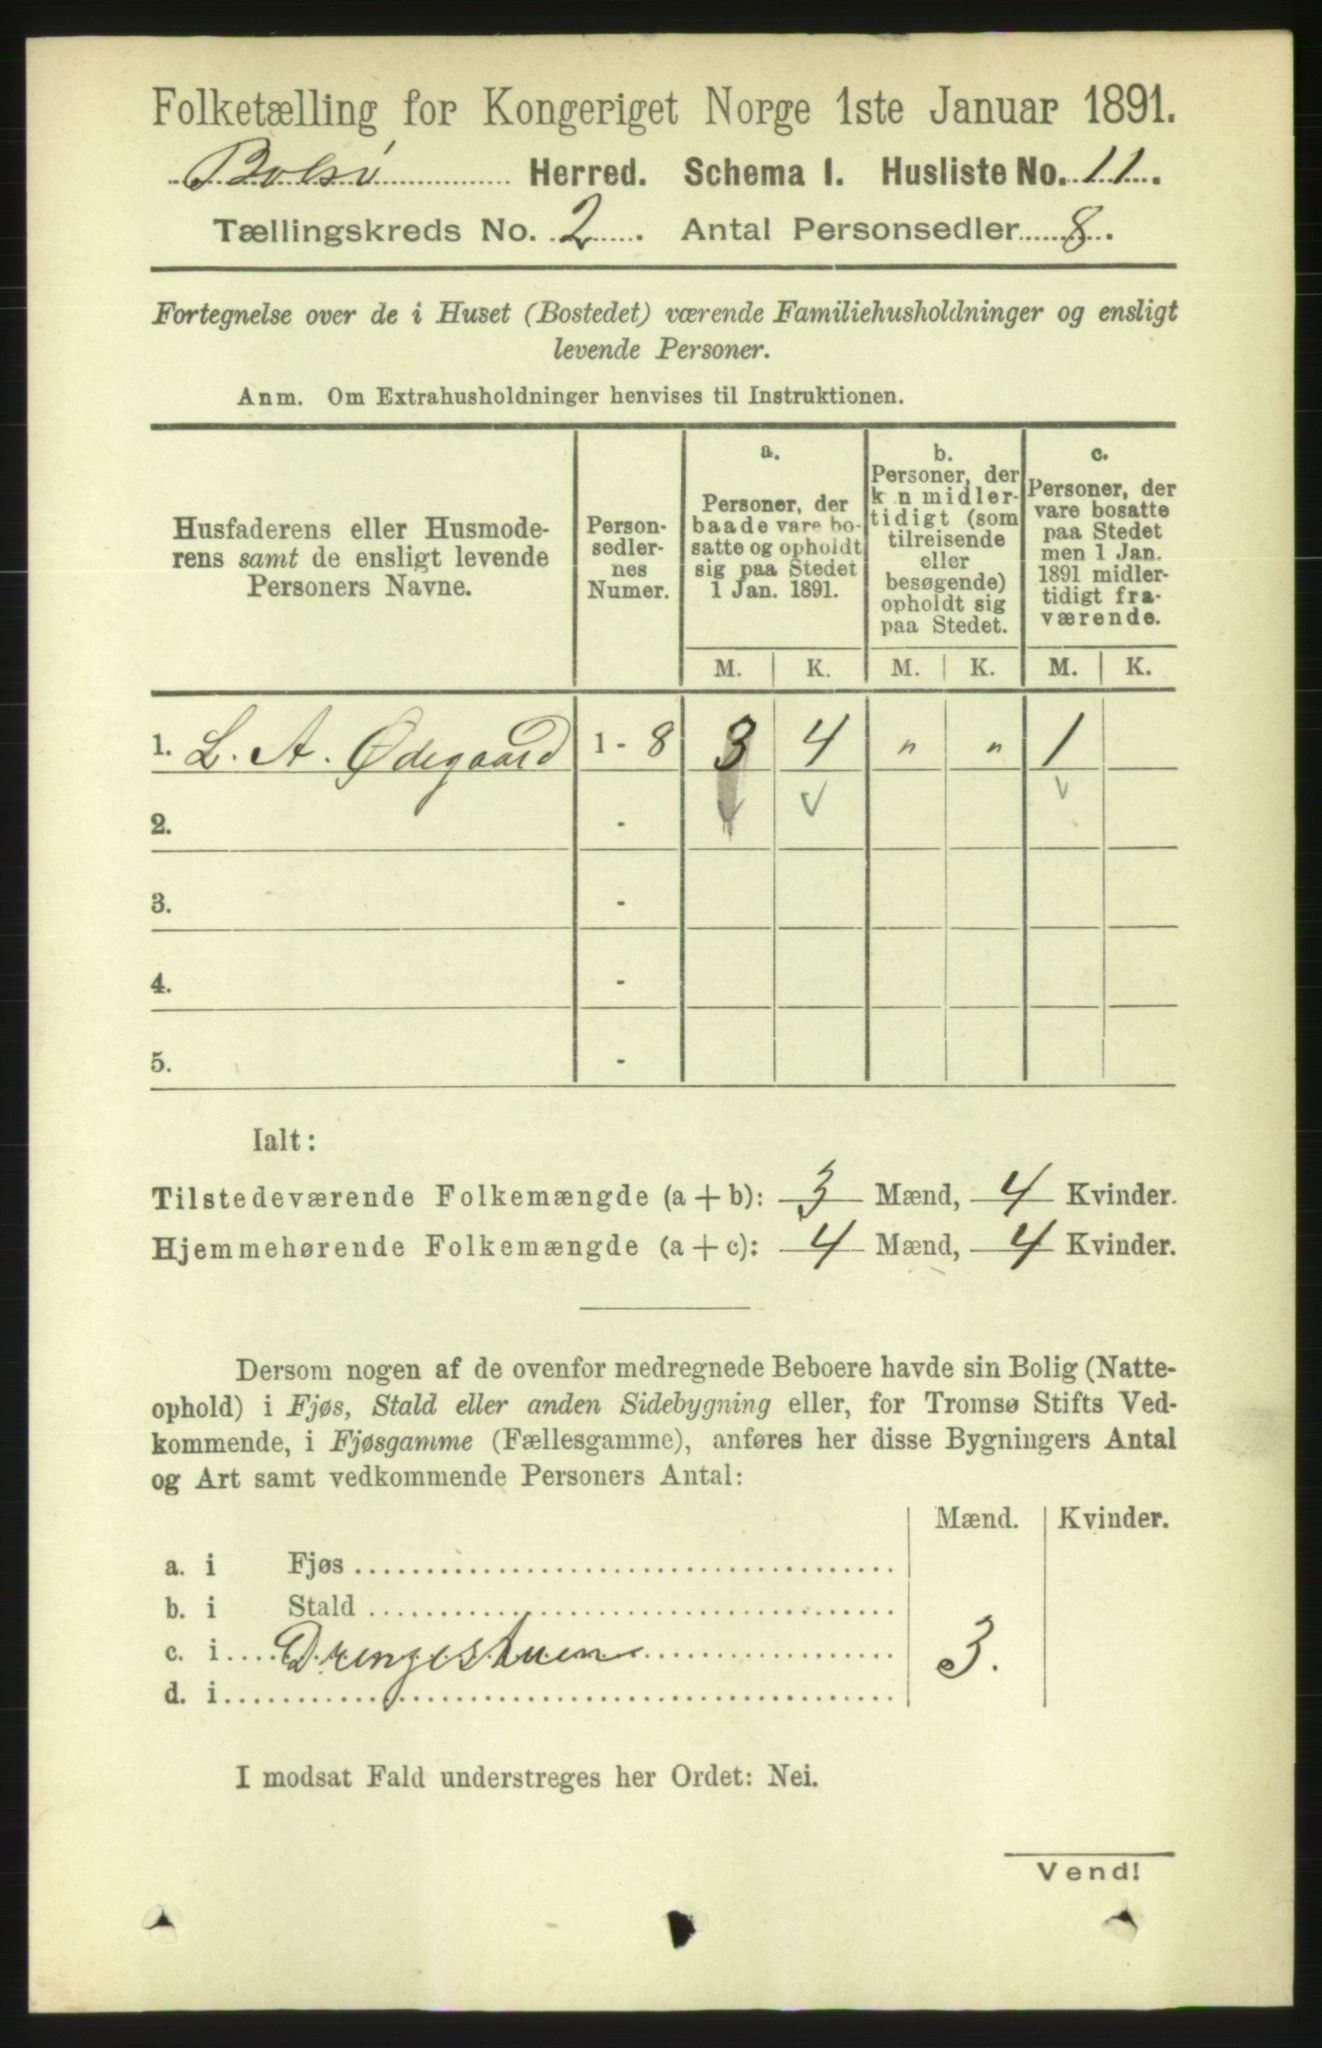 Folketælling for Kongeriget Norge 1ste Januar 1891.
Bolsø Herred. Schema 1. Husliste No. 11.
Tællingskreds No. 2. Antal Personsedler 8.
Fortegnelse over de i Huset (Bostedet) værende Familiehusholdninger og ensligt
levende Personer.
Anm. Om Extrahusholdninger henvises til Instruktionen.
Husfaderens eller Husmode-
rens samt de ensligt levende
Personers Navne.
Person-
sedler-
nes
Numer.
a.
Personer, der
baade vare bo-
satte og opholdt
sig paa Stedet
1 Jan. 1891.
b.
Personer, der
k n midler-
tidigt (som
tilreisende
eller
besøgende)
opholdt sig
paa Stedet.
c.
Personer, der
vare bosatte
paa Stedet
men 1 Jan.
1891 midler-
tidigt fra-
værende.
M. K. M. K. M. K.
1. L. A. Ødegaard 1 - 8 3 4 " " 1
2. -
3. -
4. -
5. -
Ialt:
Tilstedeværende Folkemængde (a + b): 3 Mænd, 4 Kvinder.
Hjemmehørende Folkemængde (a + c): 4 Mænd, 4 Kvinder.
Dersom nogen af de ovenfor medregnede Beboere havde sin Bolig (Natte-
ophold) i Fjøs, Stald eller anden Sidebygning eller, for Tromsø Stifts Ved-
kommende, i Fjøsgamme (Fællesgamme), anføres her disse Bygningers Antal
og Art samt vedkommende Personers Antal:
Mænd. Kvinder.
a. i Fjøs
b. i Stald
c. i Drengestuen 3.
d. i
I modsat Fald understreges her Ordet: Nei.
Vend!